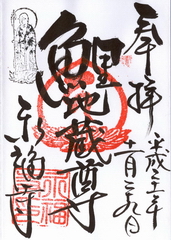 奉拝
平成二十二年
十一月二十九日
鯉地蔵尊
永福寺